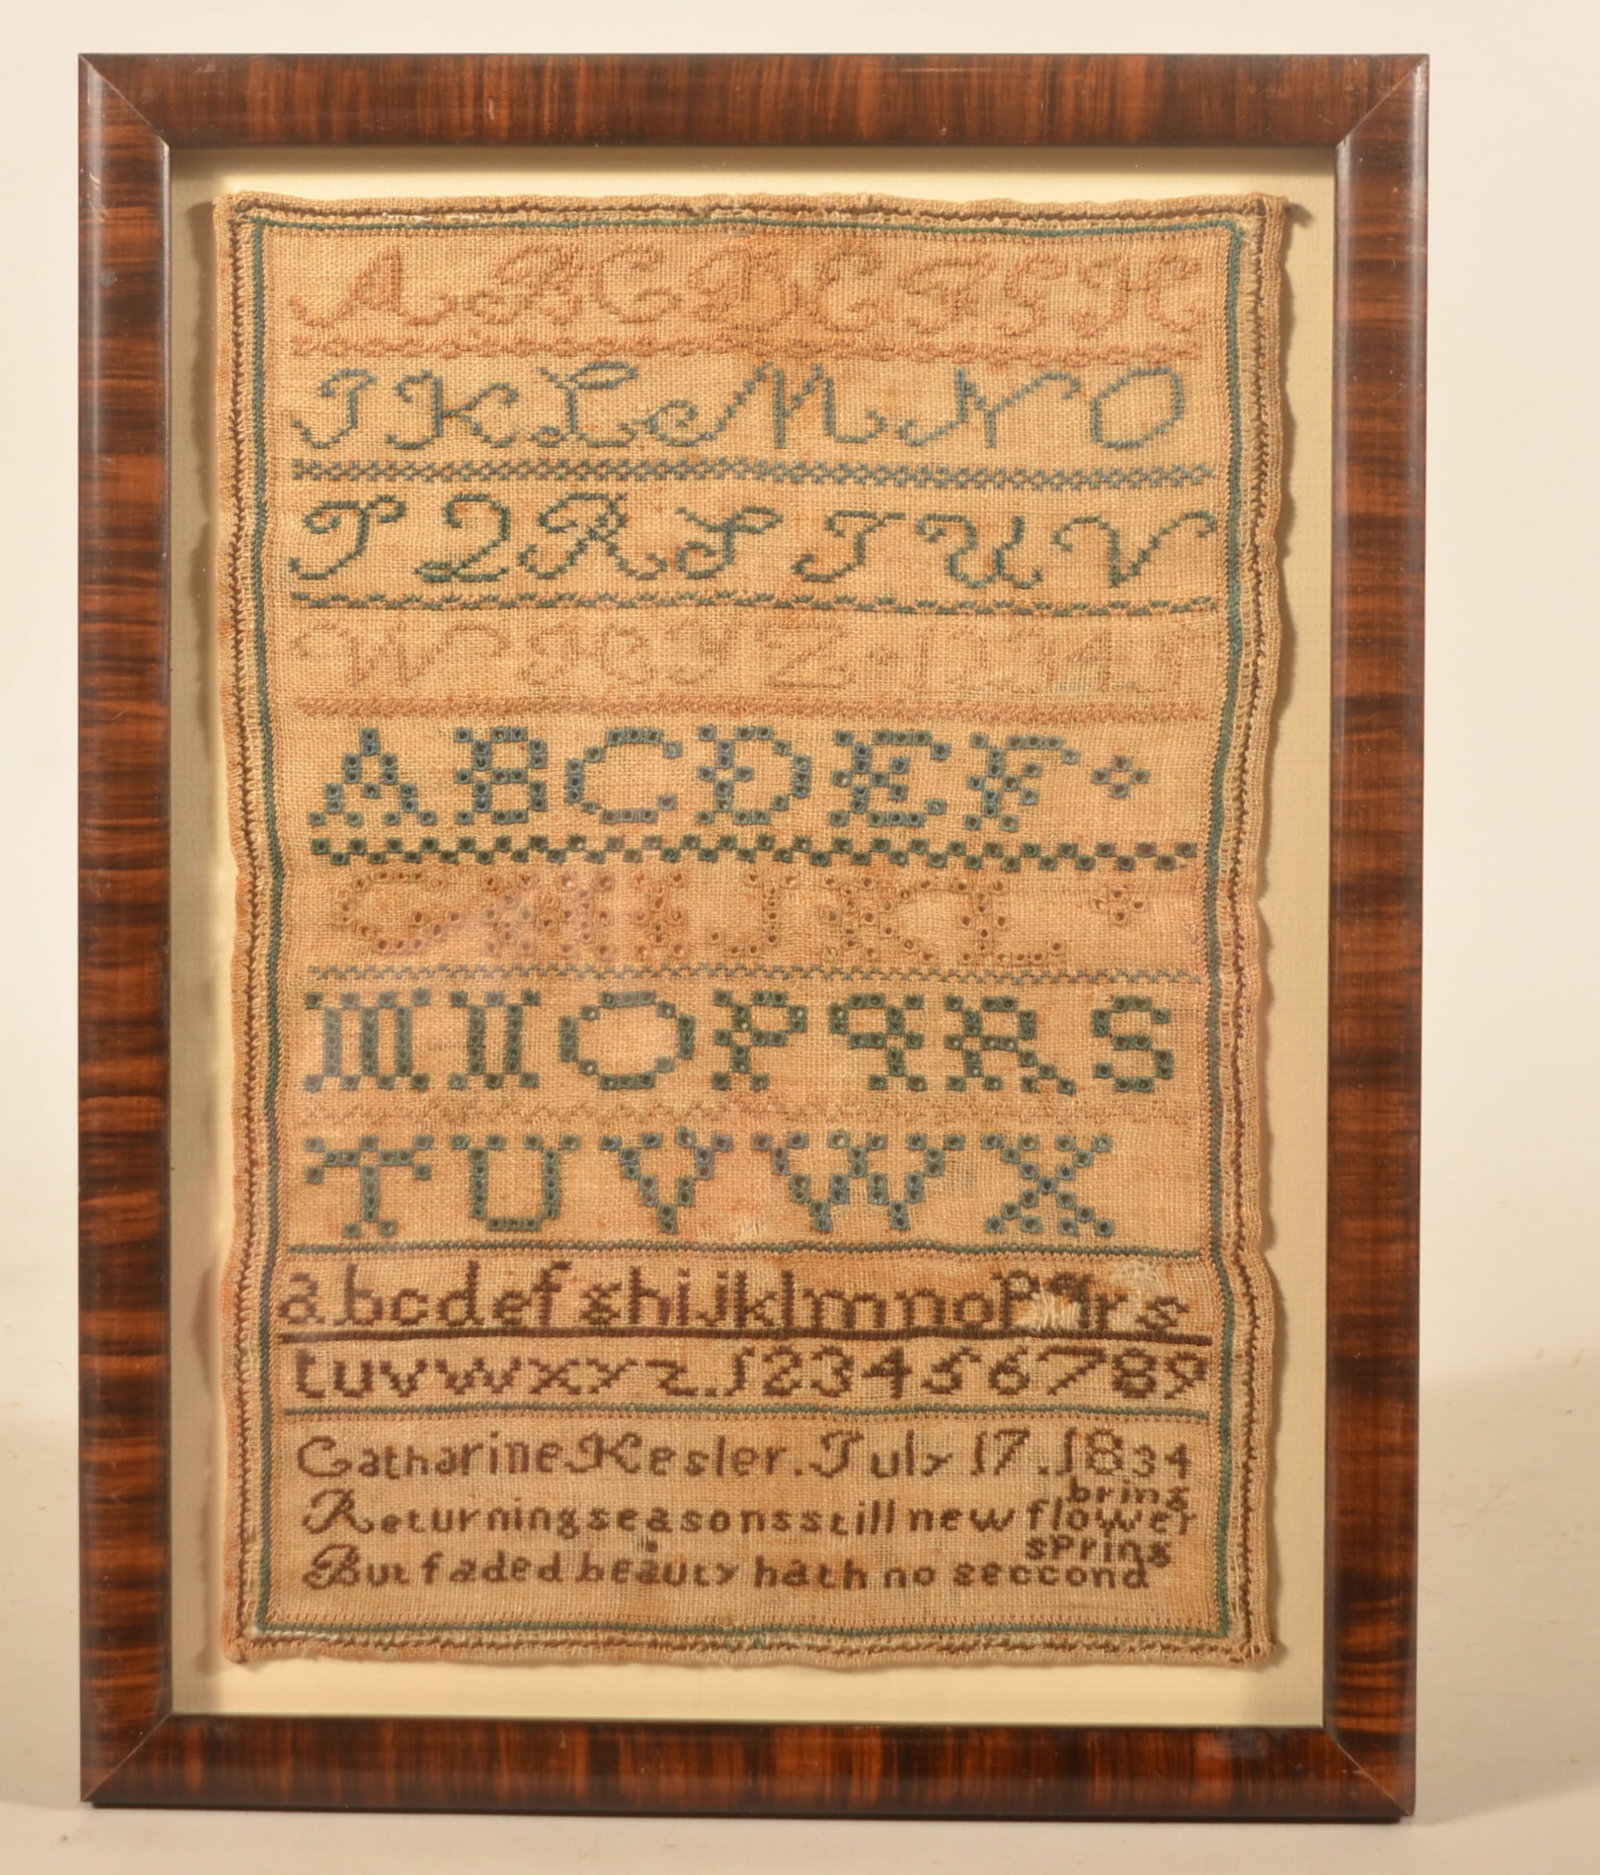 A B C D E F G H
J K L M N O
P Q R S T U V
W X Y Z 1 2 3 4 5
A B C D E F
G H I J K L
M N O P Q R S
T U V W X
a b c d e f g h i j k l m n o p q r s
t u v w x y z . 1 2 3 4 5 6 7 8 9
Catharine Kesler . July 17 . 1834
bring
Returning seasons still new flower
spring
But faded beauty hath no seccond